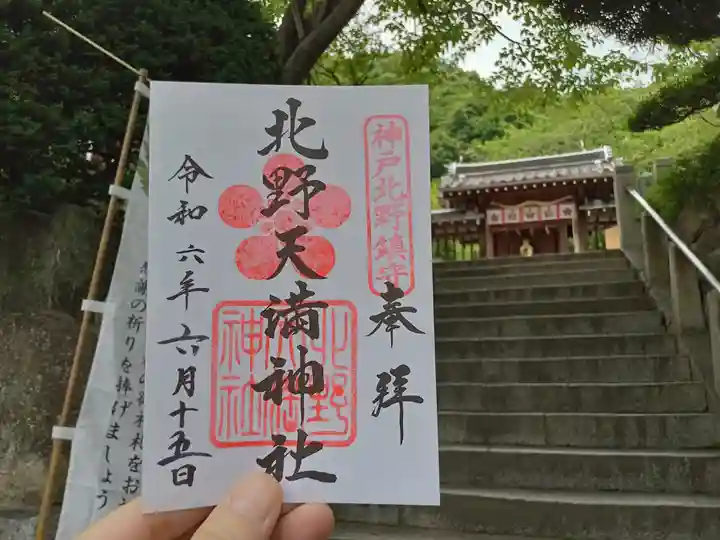 神戸北野鎮守
奉拝
北野天満神社
北野天満神社
令和六年六月十五日
の祈りを捧げ
ましょう